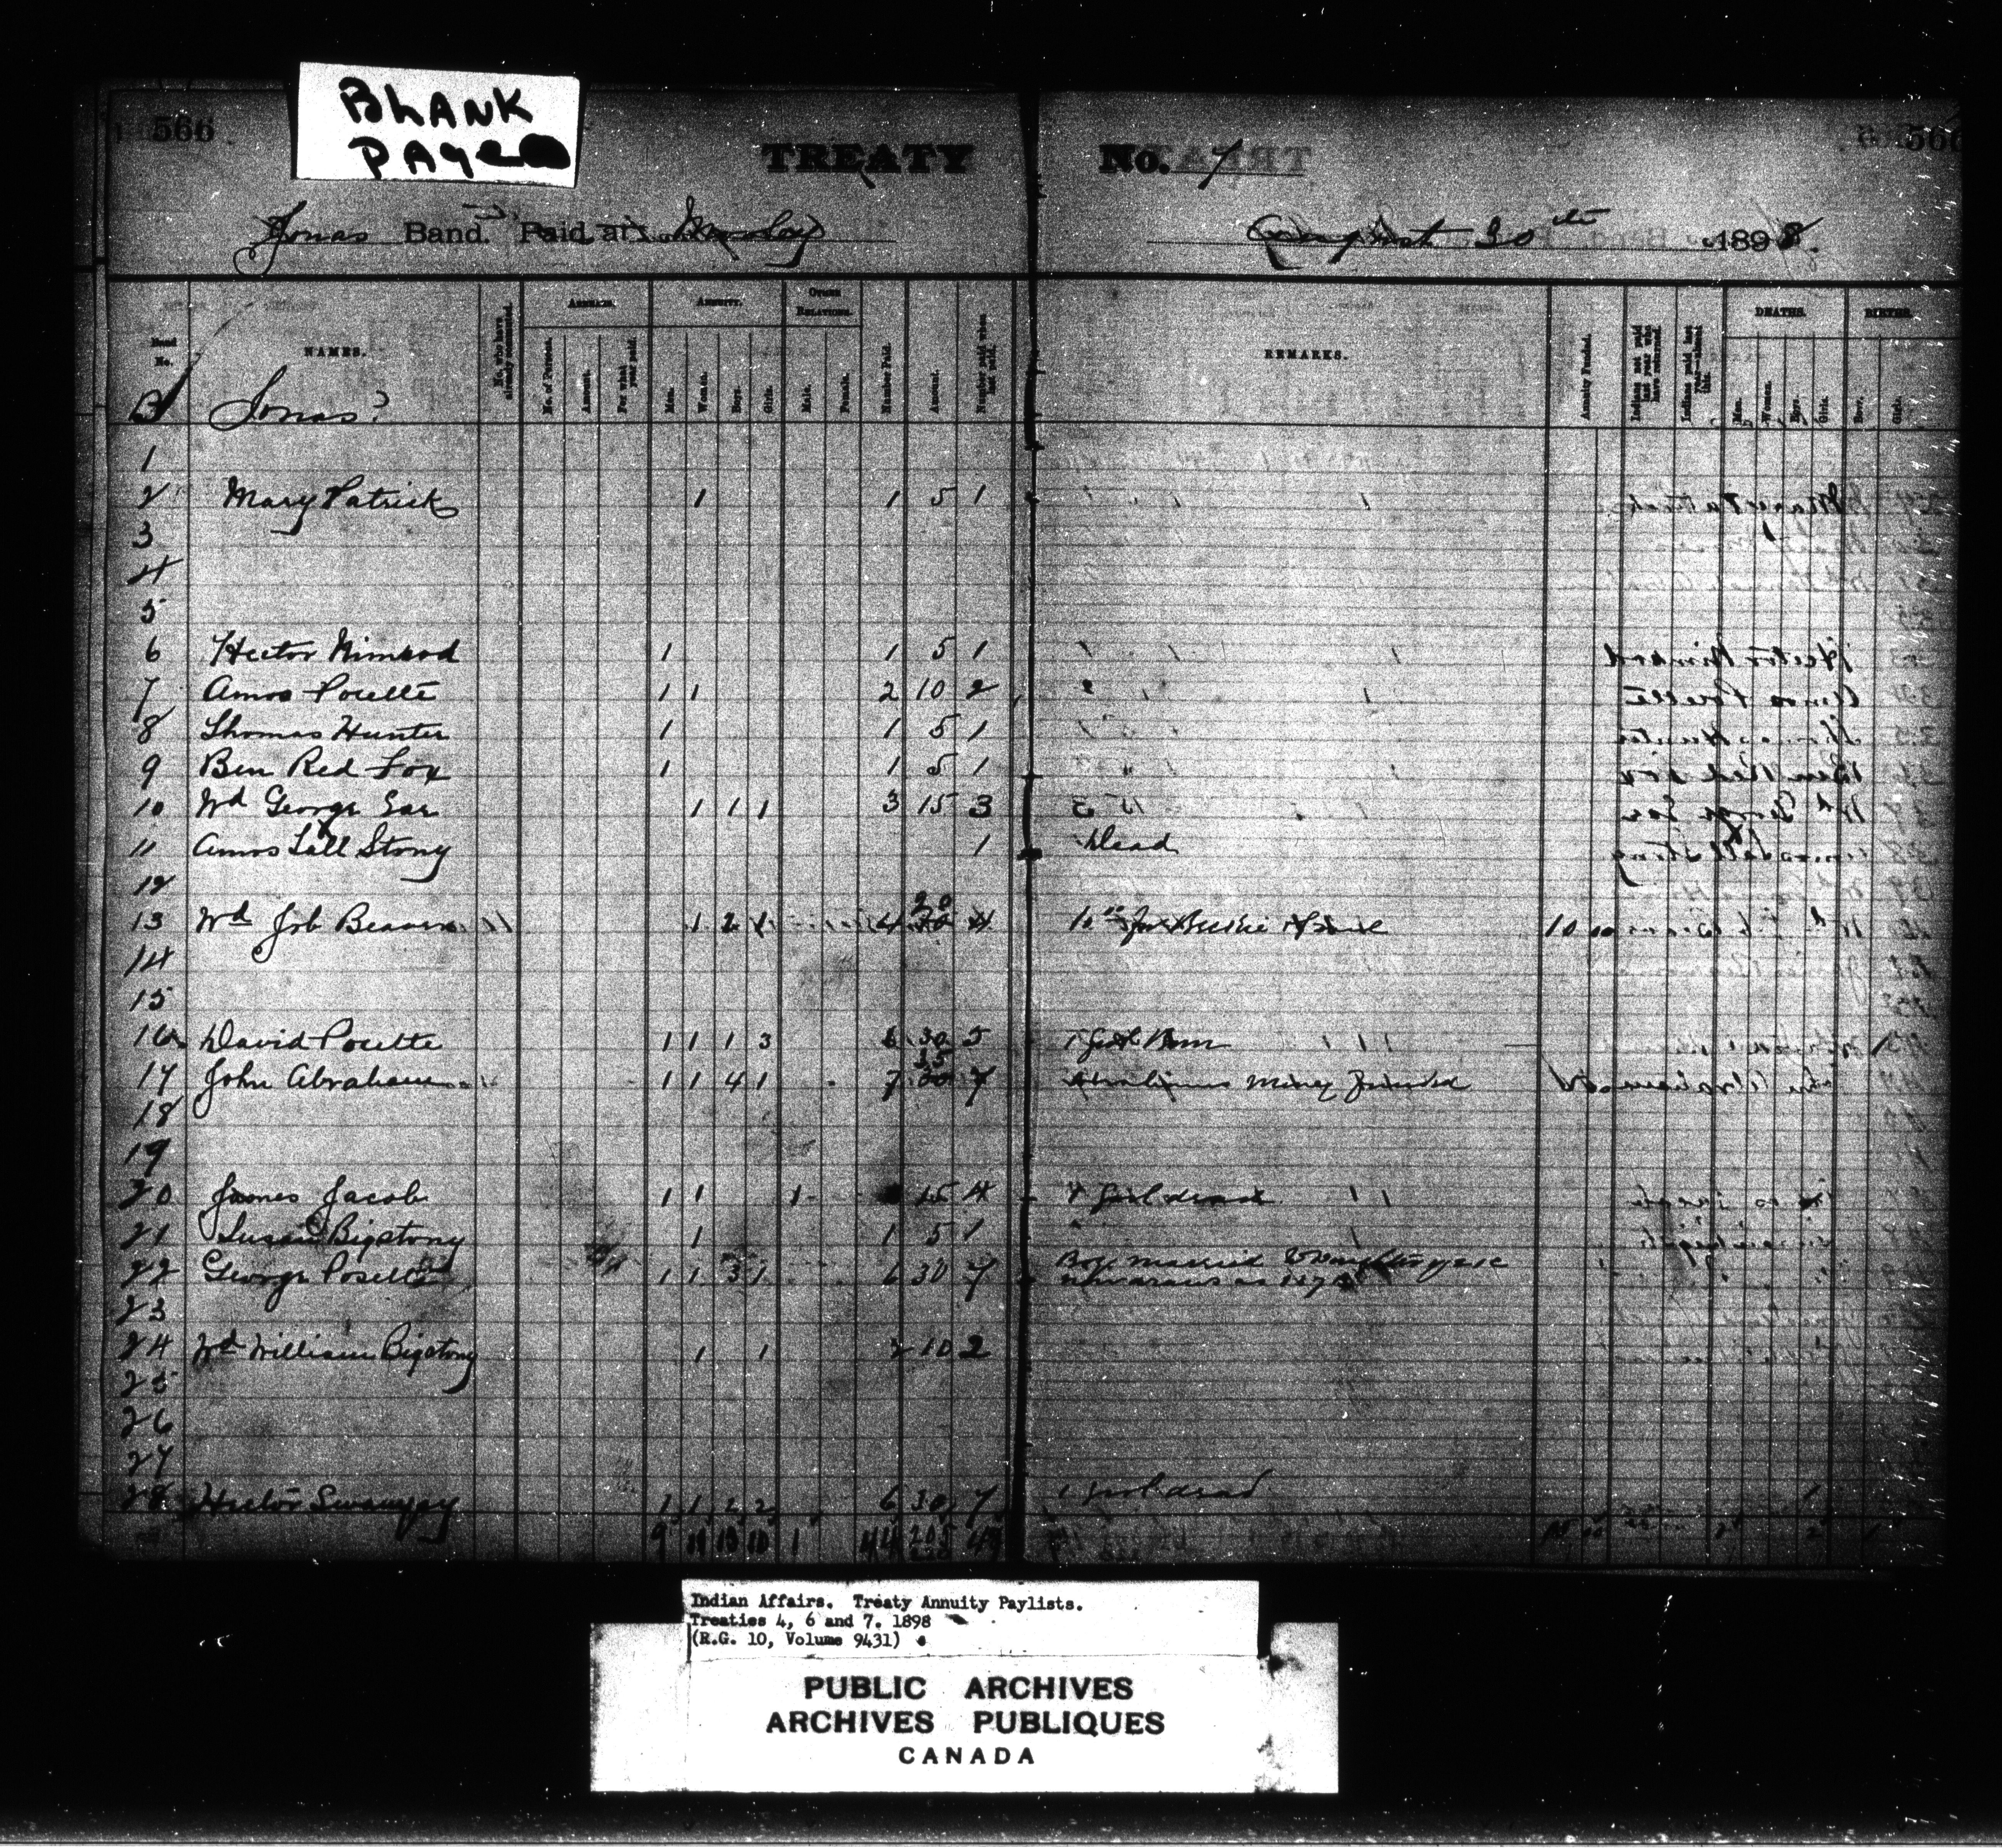 BLANK
PAGE
566
TREATY No. 7
566
Jonas Band. Paid at Morley August 30th 1898.
Band No.
NAMES.
No. who have already commuted.
ARREARS.
No. of Persons.
Amount.
For what year paid.
ANNUITY.
Men.
Women.
Boys.
Girls.
OTHER RELATIONS.
Male.
Female.
Number Paid.
Amount.
Number paid when last paid.
REMARKS.
Annuity Funded.
Indians not paid last year who have returned.
Indians paid last year absent this.
DEATHS.
Men.
Women.
Boys.
Girls.
BIRTHS.
Boys.
Girls.
B Jonas?
1
2 Mary Patrick 1 1 5 1
3
4
5
6 Hector Nimrod 1 1 5 1
7 Amos Poucette 1 1 2 10 2
8 Thomas Hunter 1 1 5 1
9 Ben Red Fox 1 1 5 1
10 Wd George Ear 1 1 1 3 15 3
11 Amos Tall Stony 1 Dead
12
13 Wd Job Beaver 1 2 1 4 20 4 10 00
14
15
16 David Poucette 1 1 1 3 6 30 5 1 Girl Born
17 John Abraham 1 1 4 1 7 35 7 Money Funded
18
19
20 James Jacob 1 1 1 15 4 1 Girl dead
21 Susan Bigstony 1 1 5 1
22 George Poucette 1 1 3 1 6 30 7 Boy married
23
24 Wd William Bigstony 1 1 2 10 2
25
26
27
28 Hector Swampy 1 1 2 2 6 30 7 1 Girl dead
9 11 13 10 1 44 205
Indian Affairs. Treaty Annuity Paylists.
Treaties 4, 6 and 7. 1898
(R.G. 10, Volume 9431)
PUBLIC ARCHIVES
ARCHIVES PUBLIQUES
CANADA